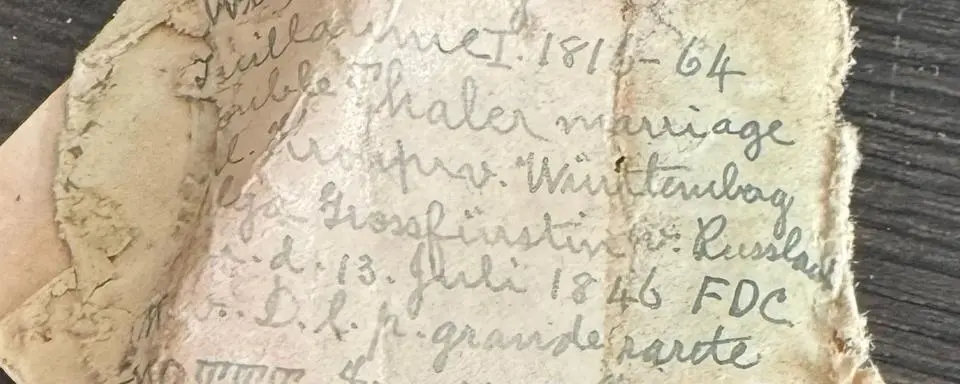 Guillaume I. 1816-64
Double Thaler marriage
d. Kronpr. v. Württemberg
Olga Grossfürstin v. Russland
d. 13. Juli 1846 FDC
D. l. p. grande rareté